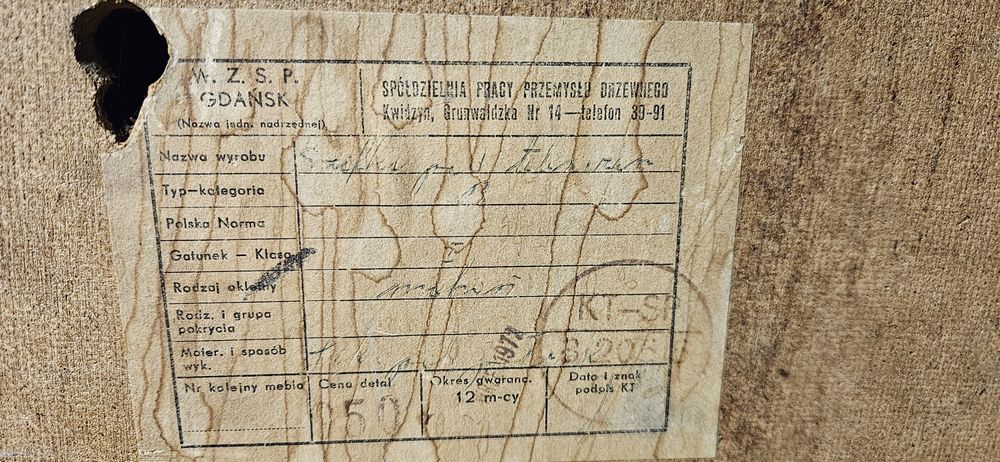 W. Z. S. P.
GDAŃSK
(Nazwa jedn. nadrzędnej)
SPÓŁDZIELNIA PRACY PRZEMYSŁU DRZEWNEGO
Kwidzyn, Grunwaldzka Nr 14—telefon 39-91
Nazwa wyrobu
Typ-kategoria
Polska Norma
Gatunek – Klasa
Rodzaj okleiny
mahoń
Rodz. i grupa
pokrycia
KT-SP
Mater. i sposób
wyk.
1972
Nr kolejny mebla
Cena detal
50
Okres gwaranc.
12 m-cy
Data i znak
podpis KT